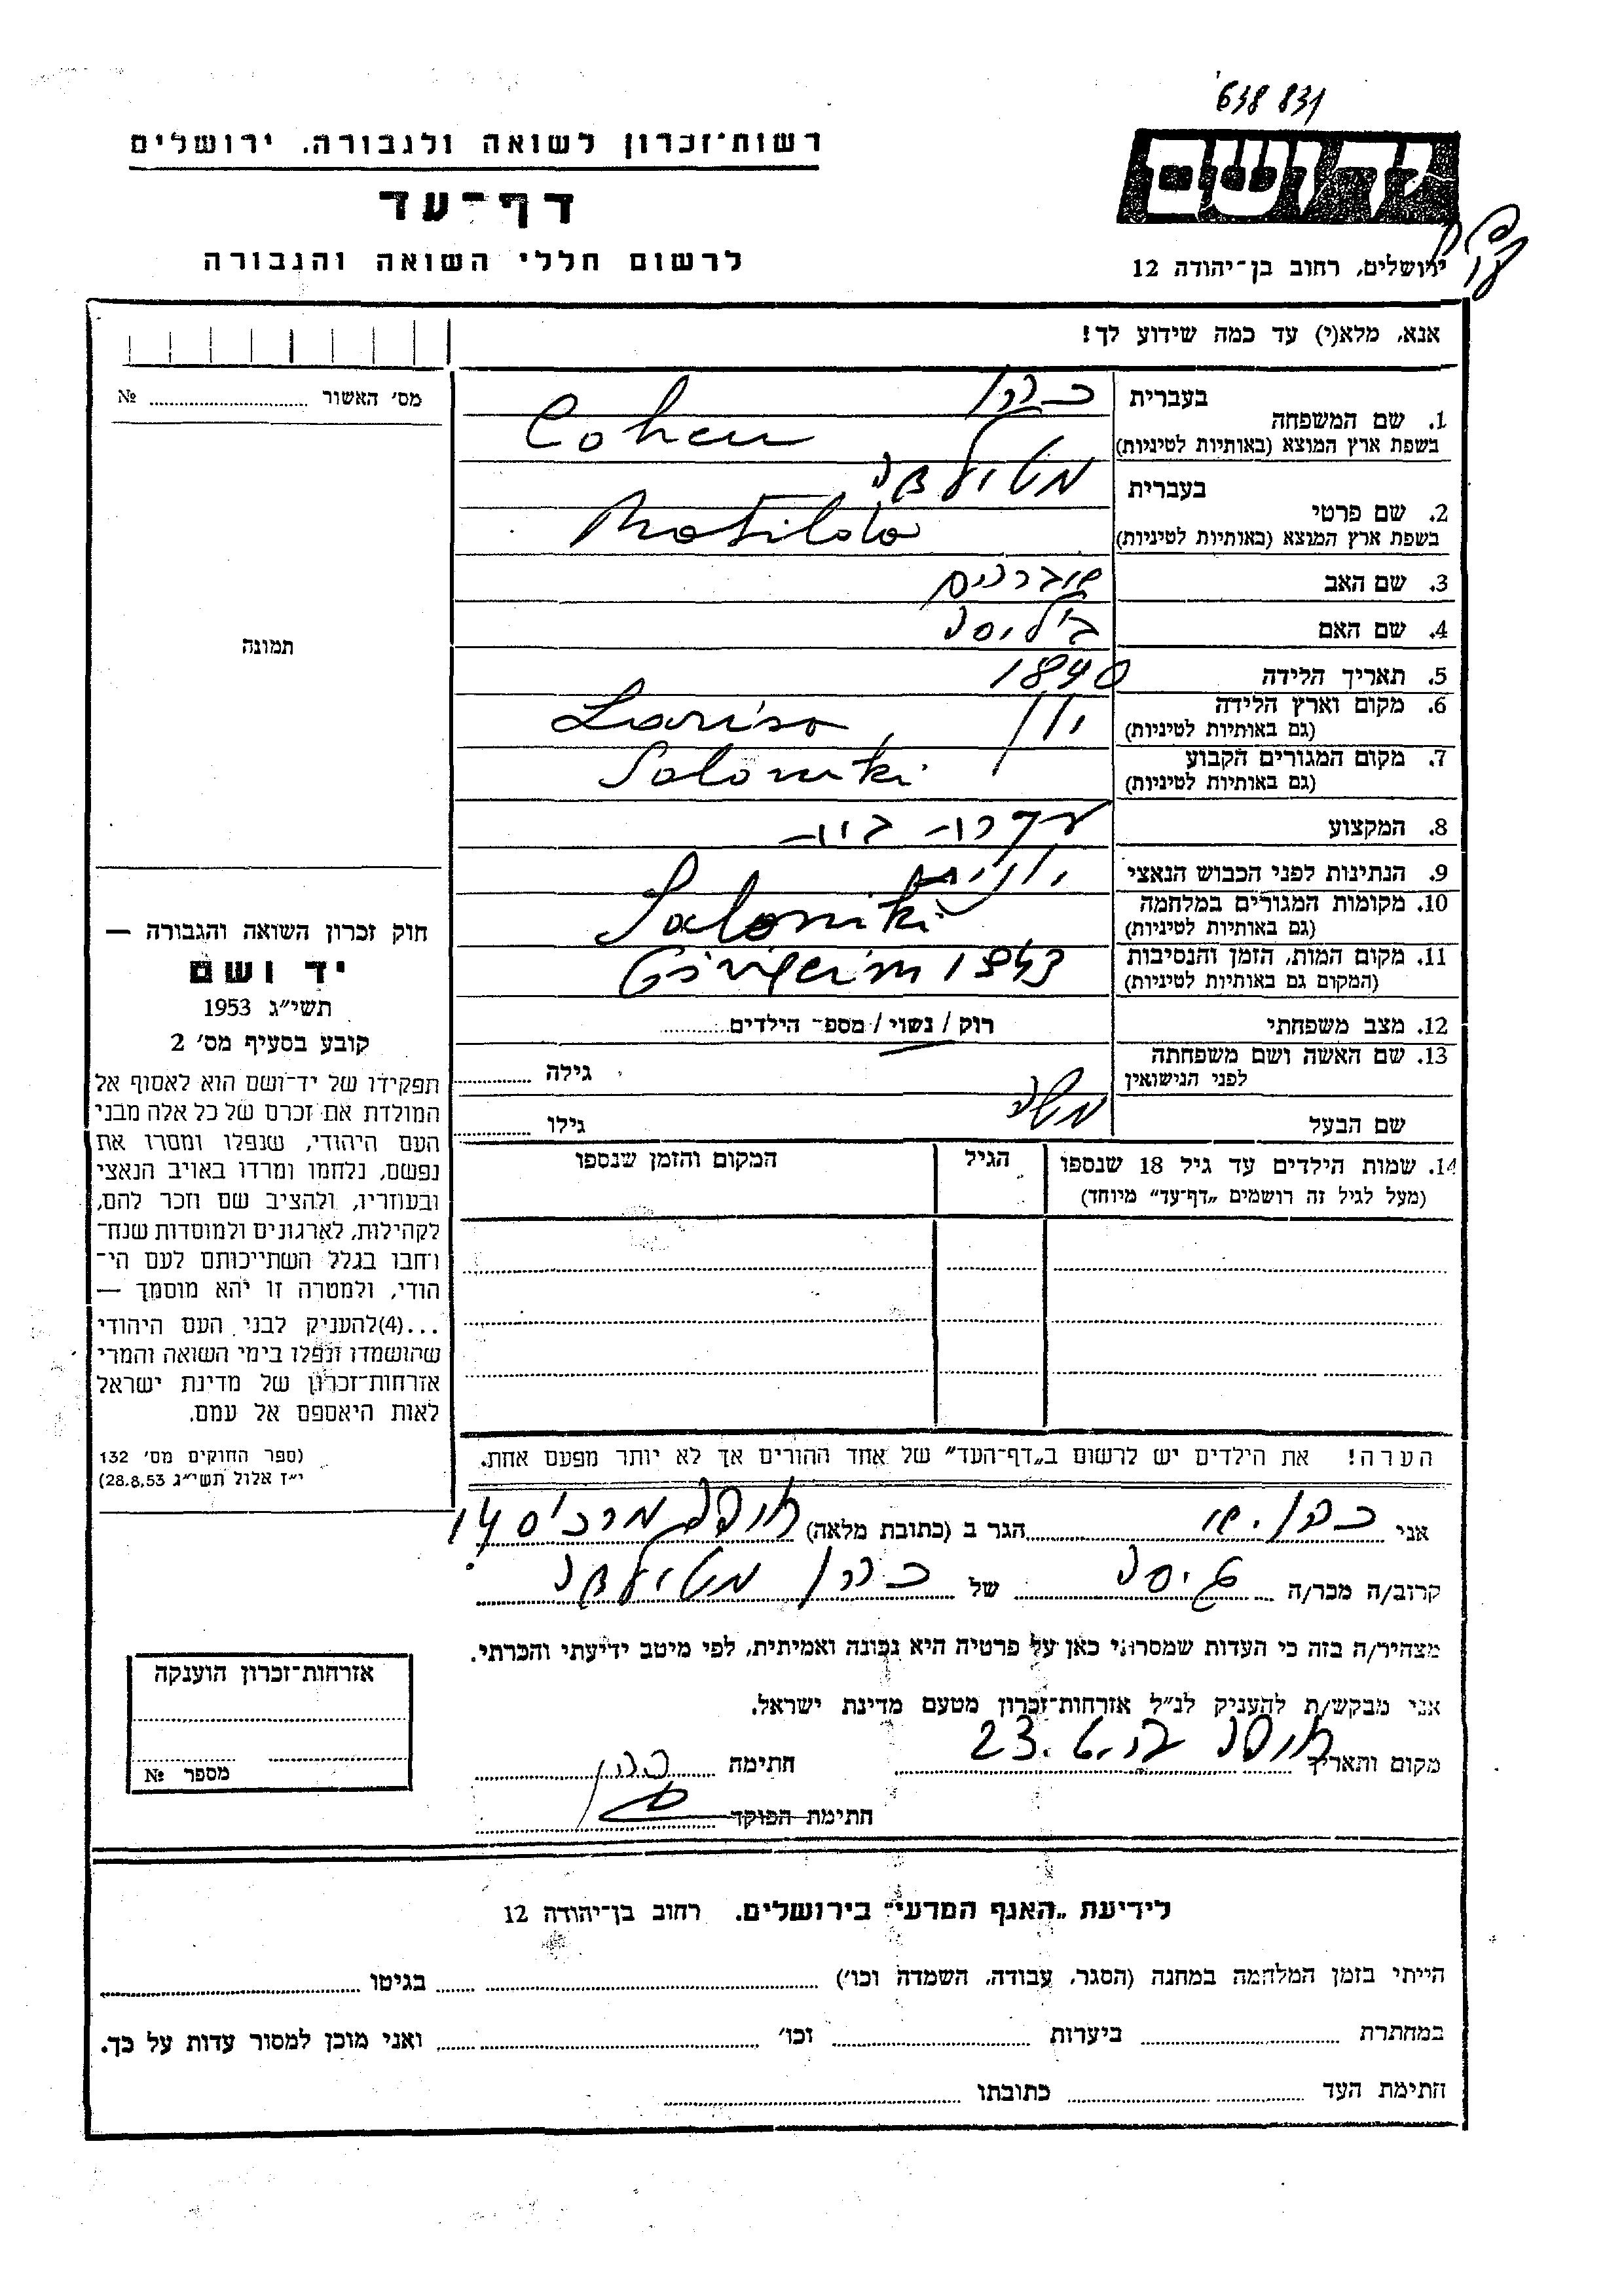 638 831
רשות־זכרון לשואה ולגבורה. ירושלים
דף־עד
לרשום חללי השואה והגבורה
ידושם
ירושלים, רחוב בן־יהודה 12
אנא, מלא(י) עד כמה שידוע לך!
מס׳ האשור № 
תמונה
חוק זכרון השואה והגבורה —
יד ושם
תשי״ג 1953
קובע בסעיף מס׳ 2
תפקידו של יד־ושם הוא לאסוף אל
המולדת את זכרם של כל אלה מבני
העם היהודי, שנפלו ומסרו את
נפשם, נלחמו ומרדו באויב הנאצי
ובעוזריו, ולהציב שם וזכר להם,
לקהילות, לארגונים ולמוסדות שנח־
רחבו בגלל השתייכותם לעם הי־
הודי, ולמטרה זו יהא מוסמך —
...(4)להעניק לבני העם היהודי
שהושמדו ונפלו בימי השואה והמרי
אזרחות־זכרון של מדינת ישראל
לאות היאספם אל עמם.
(ספר החוקים מס׳ 132
י״ז אלול תשי״ג 28.8.53)
בעברית כהן
1. שם המשפחה
בשפת ארץ המוצא (באותיות לטיניות) Cohen
בעברית מטילדה
2. שם פרטי
בשפת ארץ המוצא (באותיות לטיניות) Matilda
3. שם האב
4. שם האם
5. תאריך הלידה 1890
6. מקום וארץ הלידה יוון Larisa
(גם באותיות לטיניות)
7. מקום המגורים הקבוע Saloniki
(גם באותיות לטיניות)
8. המקצוע עקרת בית
9. הנתינות לפני הכבוש הנאצי יוונית
10. מקומות המגורים במלחמה Saloniki
(גם באותיות לטיניות)
11. מקום המות, הזמן והנסיבות 1943
(המקום גם באותיות לטיניות)
12. מצב משפחתי רוק / נשוי / מספר הילדים
13. שם האשה ושם משפחתה
לפני הנישואין גילה
שם הבעל משה גילו
14. שמות הילדים עד גיל 18 שנספו הגיל המקום והזמן שנספו
(מעל לגיל זה רושמים „דף־עד״ מיוחד)
הערה! את הילדים יש לרשום ב„דף־העד״ של אחד ההורים אך לא יותר מפעם אחת.
אני כהן הגר ב (כתובת מלאה) 14
קרוב/ה מכר/ה גיסה של כהן מטילדה
מצהיר/ה בזה כי העדות שמסרתי כאן על פרטיה היא נכונה ואמיתית, לפי מיטב ידיעתי והכרתי.
אני מבקש/ת להעניק לנ״ל אזרחות־זכרון מטעם מדינת ישראל.
מקום ותאריך 23.6. חתימה כהן
חתימת הפוקד
אזרחות־זכרון הוענקה
מספר №
לידיעת „האגף המדעי״ בירושלים. רחוב בן־יהודה 12
הייתי בזמן המלחמה במחנה (הסגר, עבודה, השמדה וכו׳) בגיטו
במחתרת ביערות וכו׳ ואני מוכן למסור עדות על כך.
חתימת העד כתובתו